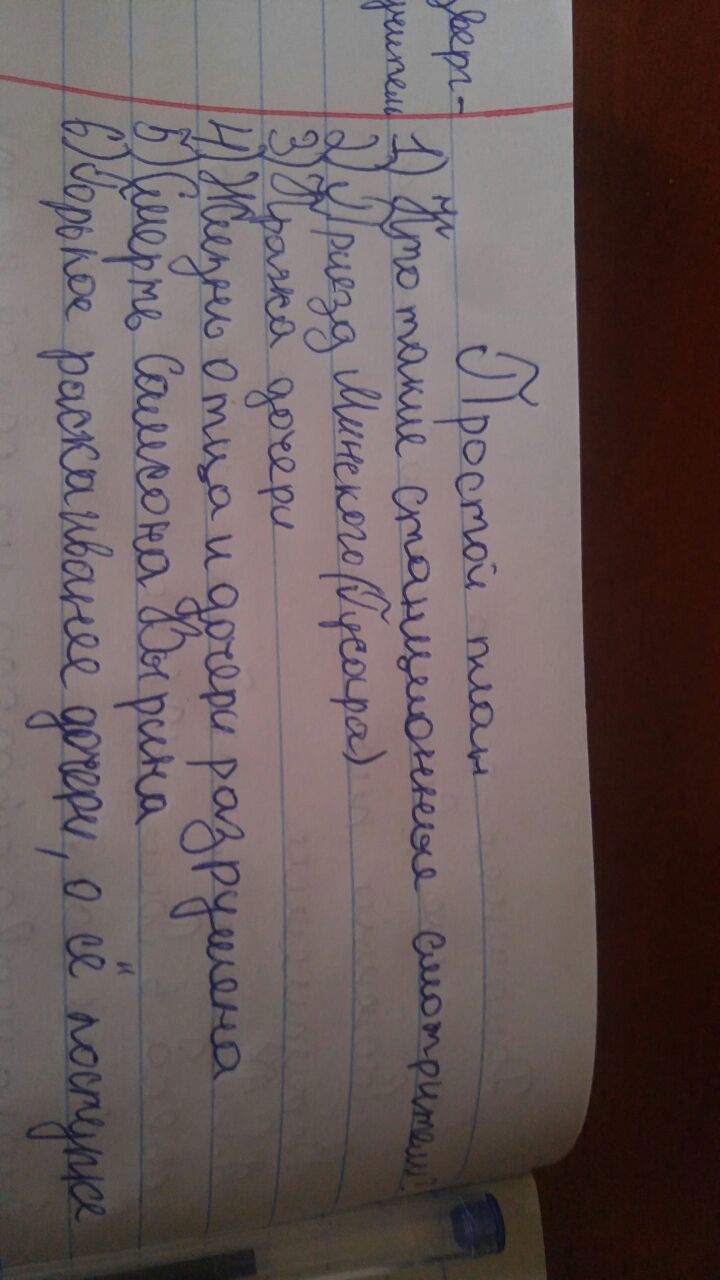 зверг-
учитель
Простой план
1) Кто такие станционные смотрители?
2) Приезд Минского (Гусара)
3) Кража дочери
4) Жизнь отца и дочери разрушена
5) Смерть Самсона Вырина
6) Горькое раскаивание дочери, о её поступке